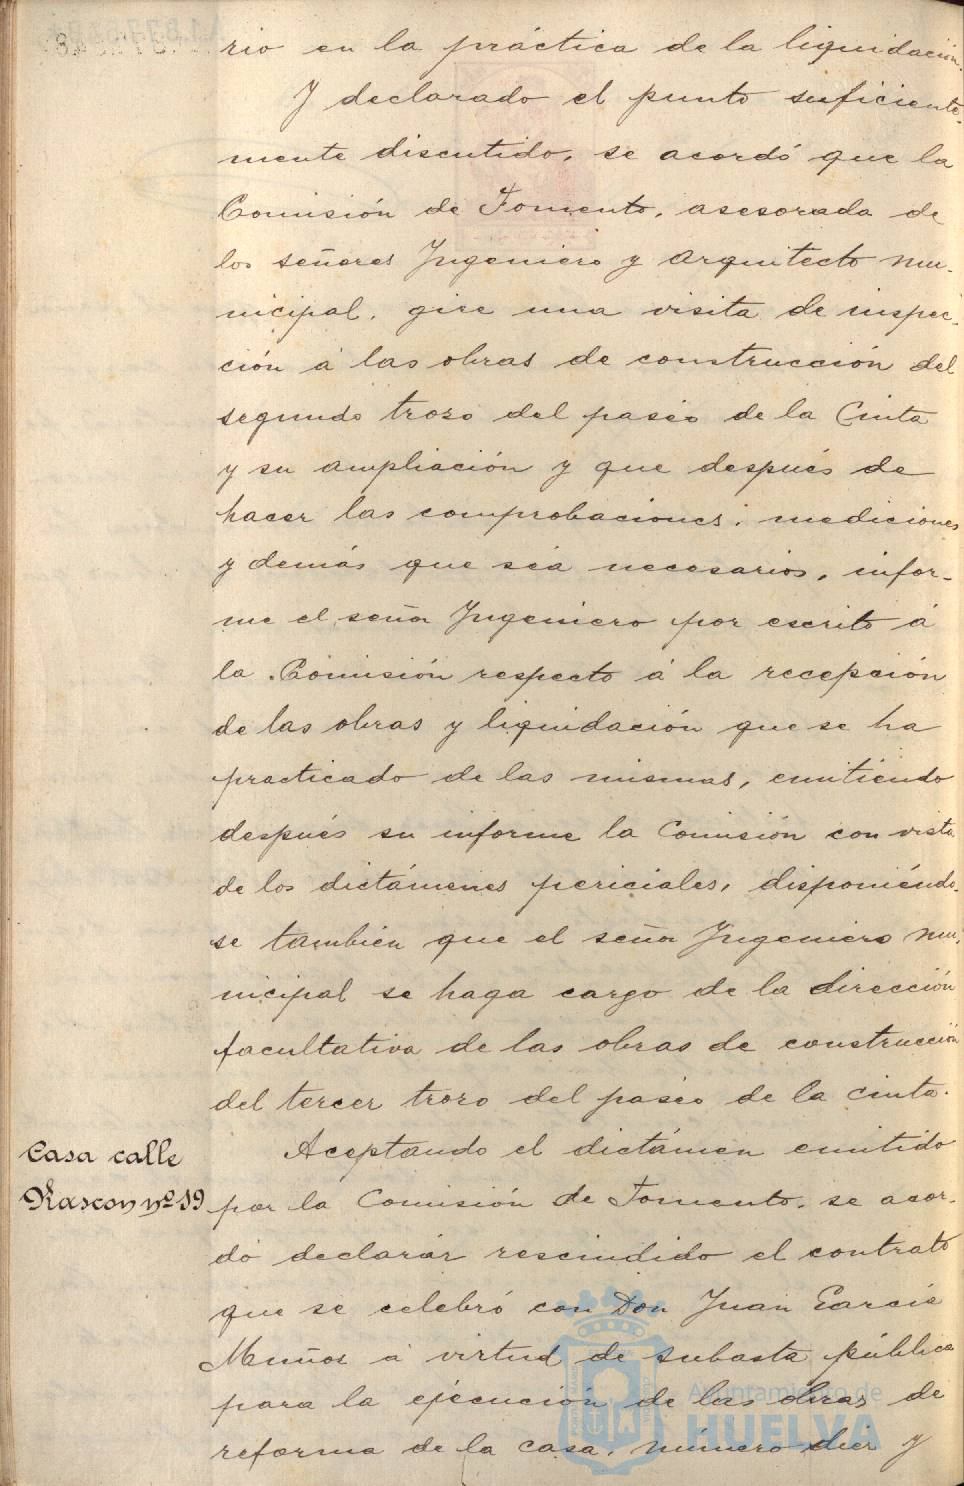 rio en la práctica de la liquidación.
Y declarado el punto suficiente-
mente discutido, se acordó que la
Comisión de Fomento, asesorada de
los señores Ingeniero y Arquitecto mu-
nicipal, gire una visita de inspec-
ción á las obras de construcción del
segundo trozo del paseo de la Cinta
y su ampliación y que después de
hacer las comprobaciones, mediciones
y demás que sea necesarios, infor-
me el señor Ingeniero por escrito á
la Comisión respecto á la recepción
de las obras y liquidación que se ha
practicado de las mismas, emitiendo
después su informe la Comisión con vista
de los dictámenes periciales, disponiéndo-
se también que el señor Ingeniero mu-
nicipal se haga cargo de la dirección
facultativa de las obras de construcción
del tercer trozo del paseo de la cinta.
Casa calle
Rascon nº 19
Aceptando el dictámen emitido
por la Comisión de Fomento, se acor-
dó declarar rescindido el contrato
que se celebró con Don Juan García
Muñoz á virtud de subasta pública
para la ejecución de las obras de
reforma de la casa, número diez y
Ayuntamiento de
HUELVA